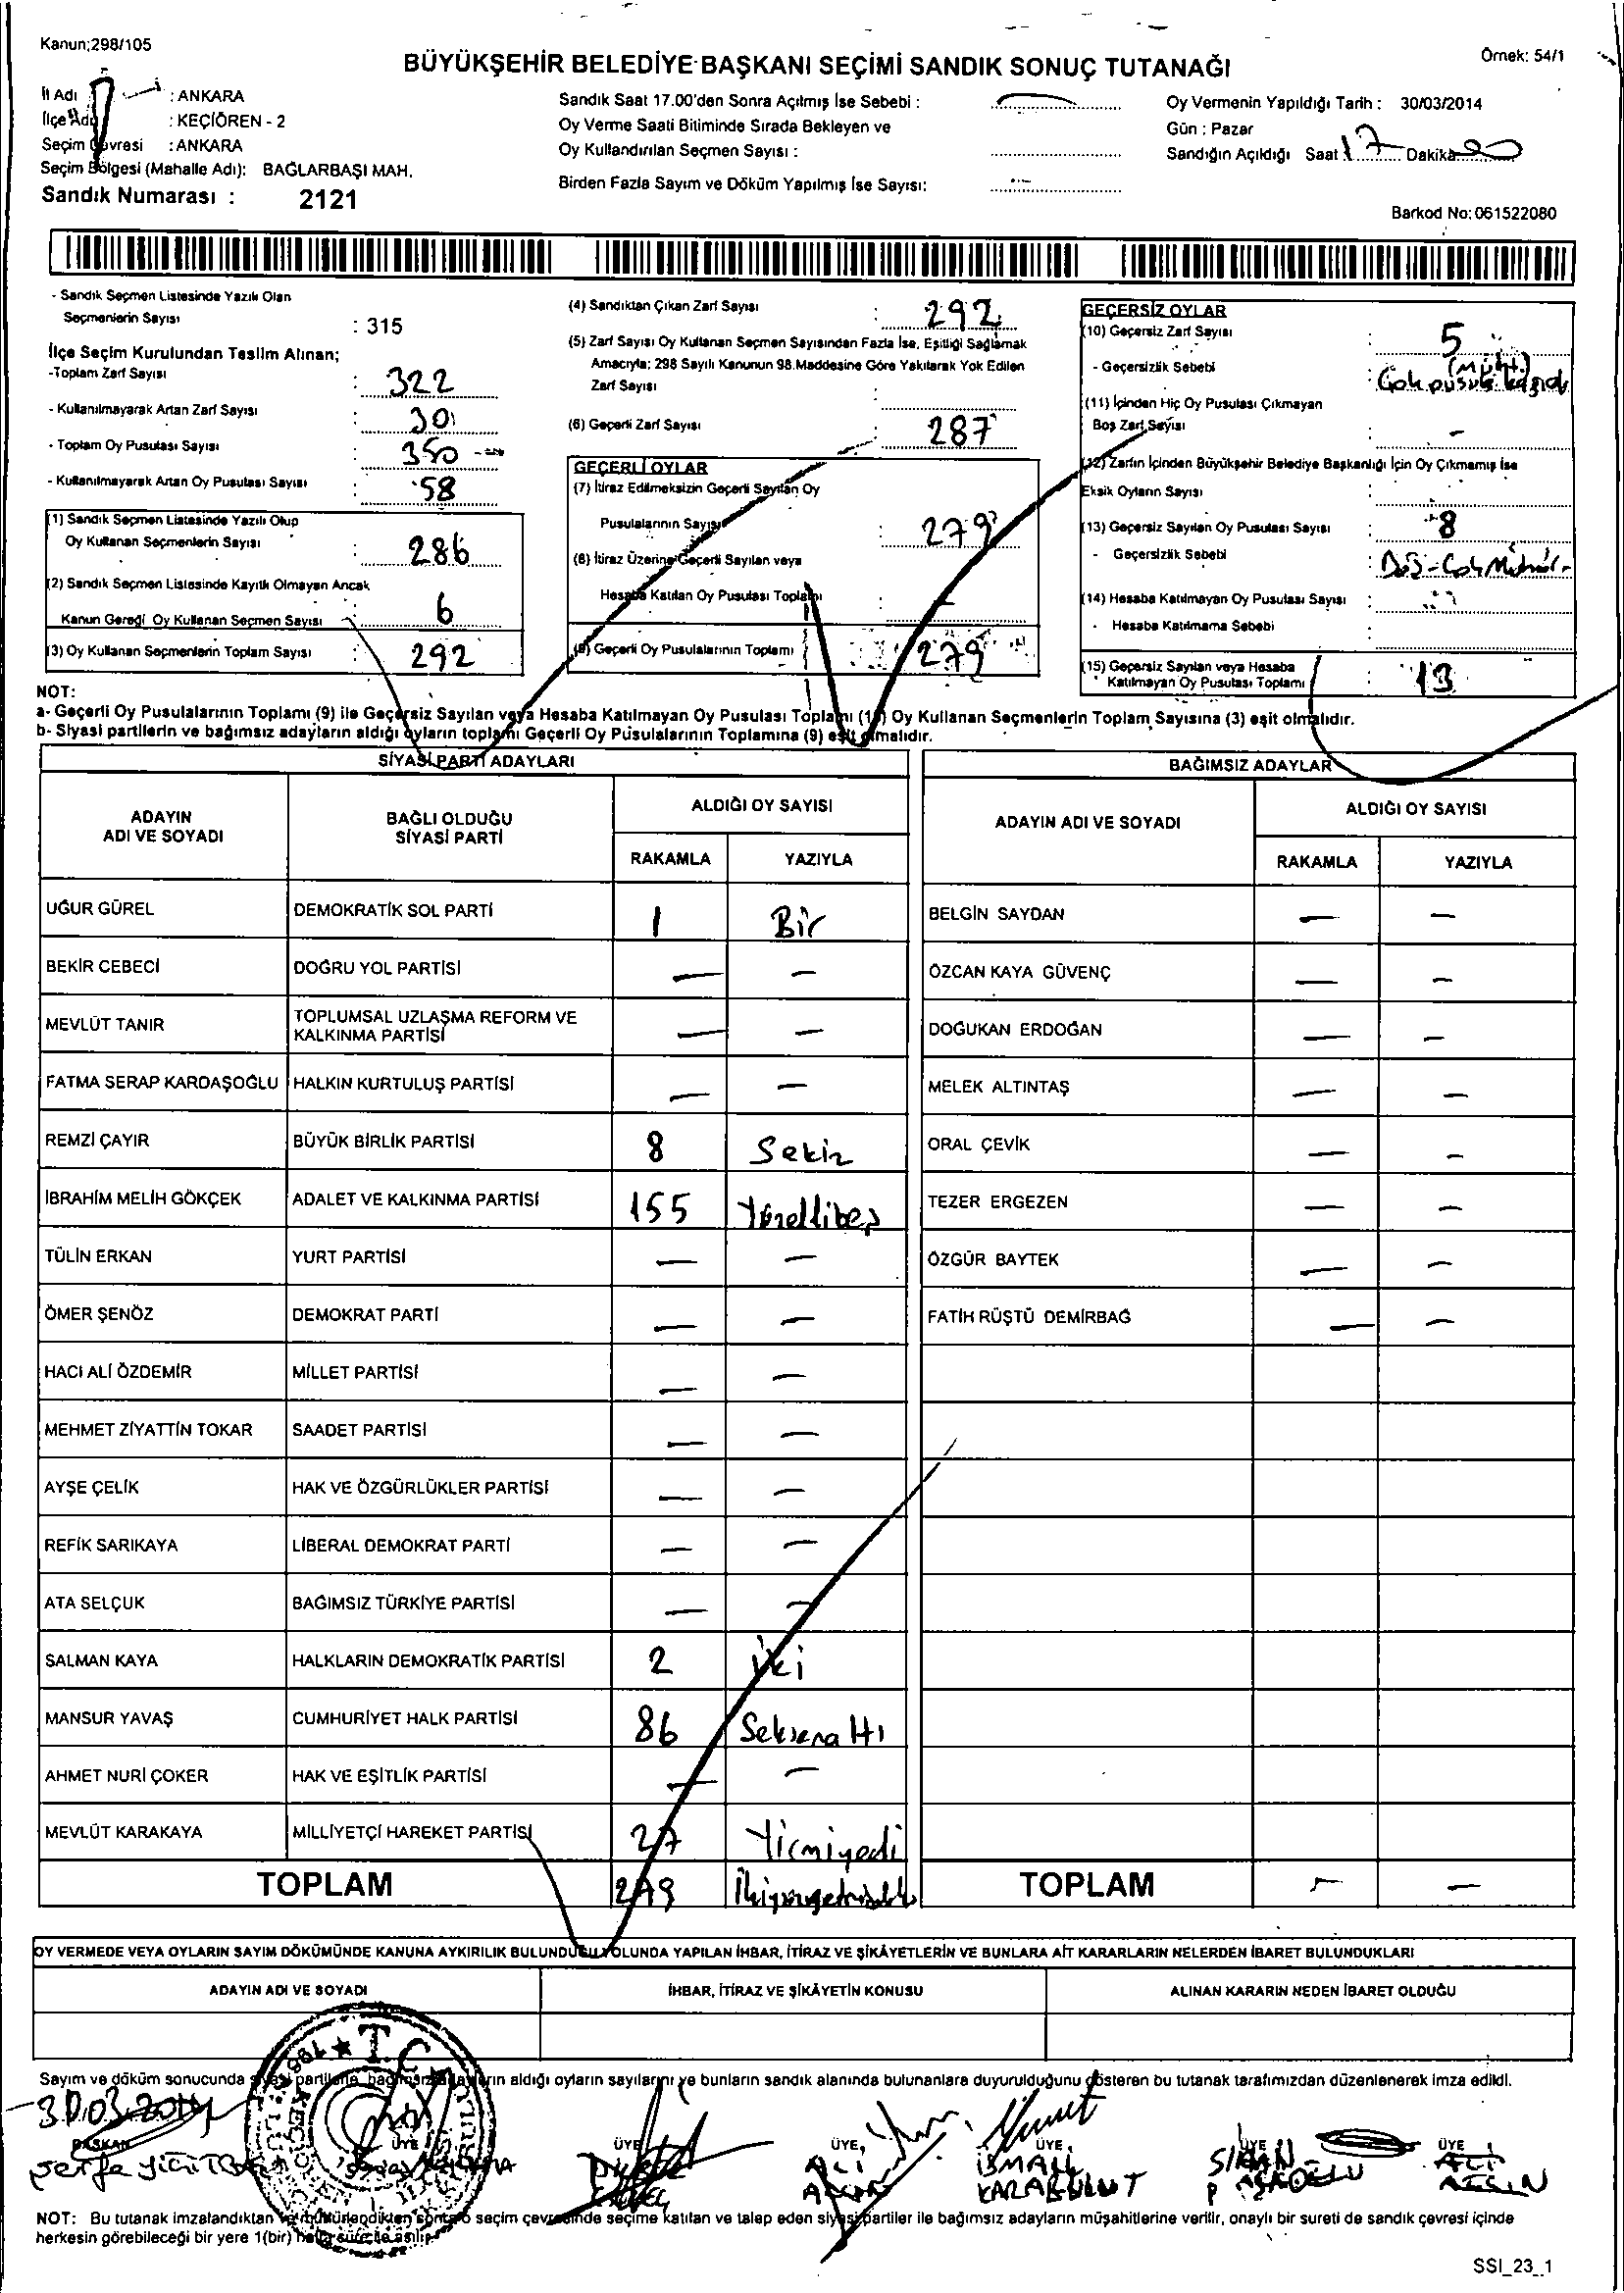 Kanun;298/105
BÜYÜKŞEHİR BELEDİYE BAŞKANI SEÇİMİ SANDIK SONUÇ TUTANAĞI
Örnek: 54/1
İl Adı : ANKARA
İlçe Adı : KEÇİÖREN - 2
Seçim Çevresi : ANKARA
Seçim Bölgesi (Mahalle Adı): BAĞLARBAŞI MAH.
Sandık Numarası : 2121
Sandık Saat 17.00'den Sonra Açılmış İse Sebebi :
Oy Verme Saati Bitiminde Sırada Bekleyen ve
Oy Kullandırılan Seçmen Sayısı :
Birden Fazla Sayım ve Döküm Yapılmış İse Sayısı:
Oy Vermenin Yapıldığı Tarih : 30/03/2014
Gün : Pazar
Sandığın Açıldığı Saat 17 Dakika 00
Barkod No: 061522080
- Sandık Seçmen Listesinde Yazılı Olan
Seçmenlerin Sayısı : 315
İlçe Seçim Kurulundan Teslim Alınan;
-Toplam Zarf Sayısı : 322
- Kullanılmayarak Artan Zarf Sayısı : 30
- Toplam Oy Pusulası Sayısı : 350
- Kullanılmayarak Artan Oy Pusulası Sayısı : 58
(1) Sandık Seçmen Listesinde Yazılı Olup
Oy Kullanan Seçmenlerin Sayısı : 286
(2) Sandık Seçmen Listesinde Kayıtlı Olmayan Ancak
Kanun Gereği Oy Kullanan Seçmen Sayısı 6
(3) Oy Kullanan Seçmenlerin Toplam Sayısı : 292
(4) Sandıktan Çıkan Zarf Sayısı : 292
(5) Zarf Sayısı Oy Kullanan Seçmen Sayısından Fazla İse, Eşitliği Sağlamak
Amacıyla; 298 Sayılı Kanunun 98.Maddesine Göre Yakılarak Yok Edilen
Zarf Sayısı :
(6) Geçerli Zarf Sayısı : 287
GEÇERLİ OYLAR
(7) İtiraz Edilmeksizin Geçerli Sayılan Oy
Pusulalarının Sayısı : 279
(8) İtiraz Üzerine Geçerli Sayılan veya
Hesaba Katılan Oy Pusulası Toplamı : -
(9) Geçerli Oy Pusulalarının Toplamı 279
GEÇERSİZ OYLAR
(10) Geçersiz Zarf Sayısı : 5
- Geçersizlik Sebebi : Çok pusula (Müht.)
(11) İçinden Hiç Oy Pusulası Çıkmayan
Boş Zarf Sayısı : -
(12) Zarfın İçinden Büyükşehir Belediye Başkanlığı İçin Oy Çıkmamış İse
Eksik Oyların Sayısı :
(13) Geçersiz Sayılan Oy Pusulası Sayısı : 8
- Geçersizlik Sebebi : Boş-Çok Mühür-
(14) Hesaba Katılmayan Oy Pusulası Sayısı :
- Hesaba Katılmama Sebebi :
(15) Geçersiz Sayılan veya Hesaba
Katılmayan Oy Pusulası Toplamı : 13
NOT:
a- Geçerli Oy Pusulalarının Toplamı (9) ile Geçersiz Sayılan veya Hesaba Katılmayan Oy Pusulası Toplamı (15) Oy Kullanan Seçmenlerin Toplam Sayısına (3) eşit olmalıdır.
b- Siyasi partilerin ve bağımsız adayların aldığı oyların toplamı Geçerli Oy Pusulalarının Toplamına (9) eşit olmalıdır.
SİYASİ PARTİ ADAYLARI
BAĞIMSIZ ADAYLAR
ADAYIN ADI VE SOYADI
BAĞLI OLDUĞU SİYASİ PARTİ
ALDIĞI OY SAYISI
RAKAMLA YAZIYLA
ADAYIN ADI VE SOYADI
ALDIĞI OY SAYISI
RAKAMLA YAZIYLA
UĞUR GÜREL DEMOKRATİK SOL PARTİ 1 Bir BELGİN SAYDAN - -
BEKİR CEBECİ DOĞRU YOL PARTİSİ - - ÖZCAN KAYA GÜVENÇ - -
MEVLÜT TANIR TOPLUMSAL UZLAŞMA REFORM VE KALKINMA PARTİSİ - - DOĞUKAN ERDOĞAN - -
FATMA SERAP KARDAŞOĞLU HALKIN KURTULUŞ PARTİSİ - - MELEK ALTINTAŞ - -
REMZİ ÇAYIR BÜYÜK BİRLİK PARTİSİ 8 Sekiz ORAL ÇEVİK - -
İBRAHİM MELİH GÖKÇEK ADALET VE KALKINMA PARTİSİ 155 Yüzellibeş TEZER ERGEZEN - -
TÜLİN ERKAN YURT PARTİSİ - - ÖZGÜR BAYTEK - -
ÖMER ŞENÖZ DEMOKRAT PARTİ - - FATİH RÜŞTÜ DEMİRBAĞ - -
HACI ALİ ÖZDEMİR MİLLET PARTİSİ - -
MEHMET ZİYATTİN TOKAR SAADET PARTİSİ - -
AYŞE ÇELİK HAK VE ÖZGÜRLÜKLER PARTİSİ - -
REFİK SARIKAYA LİBERAL DEMOKRAT PARTİ - -
ATA SELÇUK BAĞIMSIZ TÜRKİYE PARTİSİ - -
SALMAN KAYA HALKLARIN DEMOKRATİK PARTİSİ 2 İki
MANSUR YAVAŞ CUMHURİYET HALK PARTİSİ 86 Seksenaltı
AHMET NURİ ÇOKER HAK VE EŞİTLİK PARTİSİ - -
MEVLÜT KARAKAYA MİLLİYETÇİ HAREKET PARTİSİ 27 Yirmiyedi
TOPLAM 279 TOPLAM - -
OY VERMEDE VEYA OYLARIN SAYIM DÖKÜMÜNDE KANUNA AYKIRILIK BULUNDUĞU YOLUNDA YAPILAN İHBAR, İTİRAZ VE ŞİKÂYETLERİN VE BUNLARA AİT KARARLARIN NELERDEN İBARET BULUNDUKLARI
ADAYIN ADI VE SOYADI İHBAR, İTİRAZ VE ŞİKÂYETİN KONUSU ALINAN KARARIN NEDEN İBARET OLDUĞU
Sayım ve döküm sonucunda siyasi partilerle, bağımsız adayların aldığı oyların sayılarını ve bunların sandık alanında bulunanlara duyurulduğunu gösteren bu tutanak tarafımızdan düzenlenerek imza edildi.
30.03.2014
BAŞKAN ÜYE ÜYE ÜYE ÜYE ÜYE ÜYE
ALİ İSMAİL KARABULUT ALİ
NOT: Bu tutanak imzalandıktan ve mühürlendikten sonra o seçim çevresinde seçime katılan ve talep eden siyasi partiler ile bağımsız adayların müşahitlerine verilir, onaylı bir sureti de sandık çevresi içinde
herkesin görebileceği bir yere 1(bir) hafta süre ile asılır.
SSI_23_1